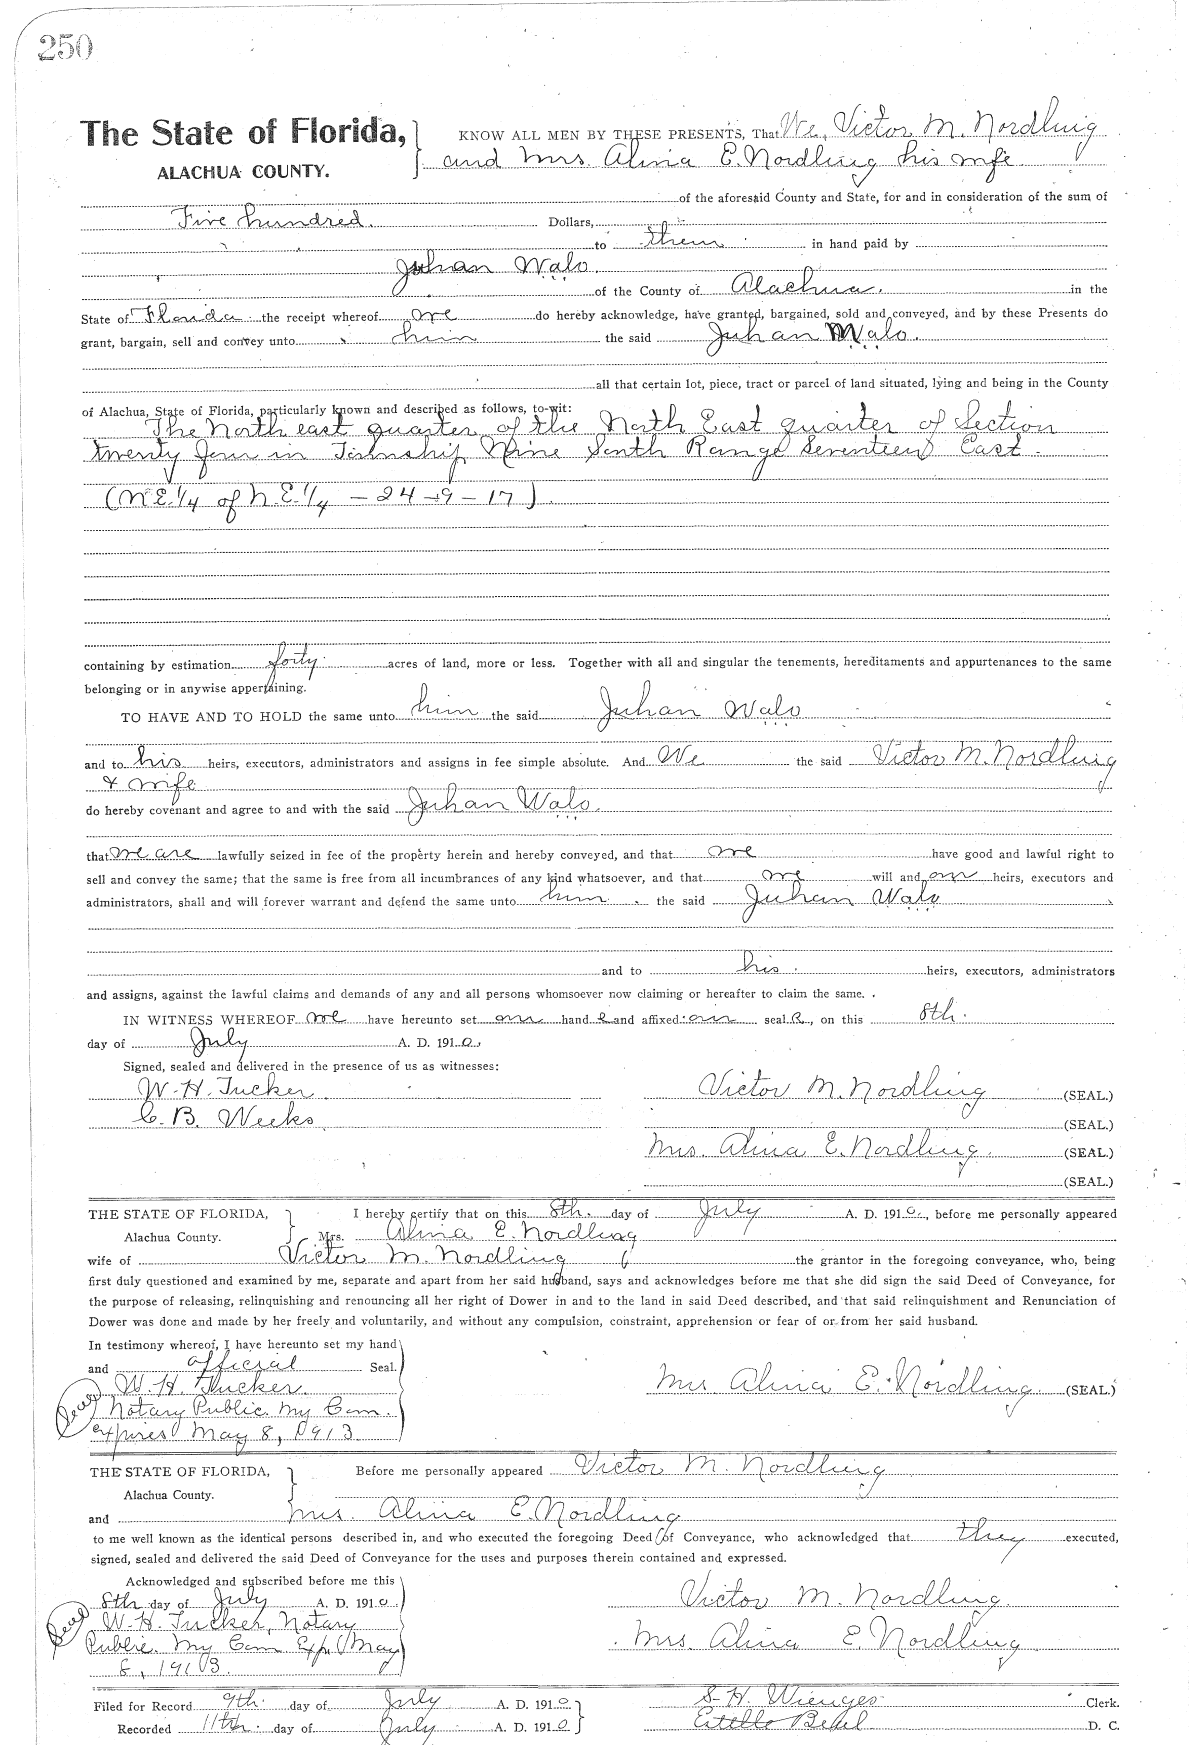 250
The State of Florida, KNOW ALL MEN BY THESE PRESENTS, That We, Victor M. Nordling
ALACHUA COUNTY. and Mrs. Alina E. Nordling his wife
of the aforesaid County and State, for and in consideration of the sum of
Five hundred. Dollars,
to them in hand paid by
Juhan Walo.
of the County of Alachua. in the
State of Florida the receipt whereof we do hereby acknowledge, have granted, bargained, sold and conveyed, and by these Presents do
grant, bargain, sell and convey unto him the said Juhan Walo.
all that certain lot, piece, tract or parcel of land situated, lying and being in the County
of Alachua, State of Florida, particularly known and described as follows, to-wit:
The North east quarter of the North East quarter of Section
twenty four in Township Nine South Range Seventeen East.
(N.E.1/4 of N.E.1/4 - 24-9-17)
containing by estimation forty acres of land, more or less. Together with all and singular the tenements, hereditaments and appurtenances to the same
belonging or in anywise appertaining.
TO HAVE AND TO HOLD the same unto him the said Juhan Walo
and to his heirs, executors, administrators and assigns in fee simple absolute. And We the said Victor M. Nordling
& wife
do hereby covenant and agree to and with the said Juhan Walo.
that we are lawfully seized in fee of the property herein and hereby conveyed, and that we have good and lawful right to
sell and convey the same; that the same is free from all incumbrances of any kind whatsoever, and that we will and our heirs, executors and
administrators, shall and will forever warrant and defend the same unto him the said Juhan Walo
and to his heirs, executors, administrators
and assigns, against the lawful claims and demands of any and all persons whomsoever now claiming or hereafter to claim the same.
IN WITNESS WHEREOF we have hereunto set our hand s and affixed our seal s, on this 8th.
day of July A. D. 1910,
Signed, sealed and delivered in the presence of us as witnesses:
W. H. Tucker. Victor M. Nordling (SEAL.)
C. B. Weeks. (SEAL.)
Mrs. Alina E. Nordling. (SEAL.)
(SEAL.)
THE STATE OF FLORIDA, I hereby certify that on this 8th. day of July A. D. 1910., before me personally appeared
Alachua County. Mrs. Alina E. Nordling
wife of Victor M. Nordling the grantor in the foregoing conveyance, who, being
first duly questioned and examined by me, separate and apart from her said husband, says and acknowledges before me that she did sign the said Deed of Conveyance, for
the purpose of releasing, relinquishing and renouncing all her right of Dower in and to the land in said Deed described, and that said relinquishment and Renunciation of
Dower was done and made by her freely and voluntarily, and without any compulsion, constraint, apprehension or fear of or from her said husband.
In testimony whereof, I have hereunto set my hand
and official Seal.
W. H. Tucker. Mrs Alina E. Nordling. (SEAL.)
Seal Notary Public. My Com.
expires May 8, 1913.
THE STATE OF FLORIDA, Before me personally appeared Victor M. Nordling
Alachua County.
and Mrs. Alina E. Nordling
to me well known as the identical persons described in, and who executed the foregoing Deed of Conveyance, who acknowledged that they executed,
signed, sealed and delivered the said Deed of Conveyance for the uses and purposes therein contained and expressed.
Acknowledged and subscribed before me this
8th day of July A. D. 1910. Victor M. Nordling.
Seal W. H. Tucker, Notary
Public. My Com. Exp. May Mrs. Alina E. Nordling
8, 1913.
Filed for Record 9th. day of July A. D. 1910 S. H. Wienges Clerk.
Recorded 11th. day of July A. D. 1910 D. C.